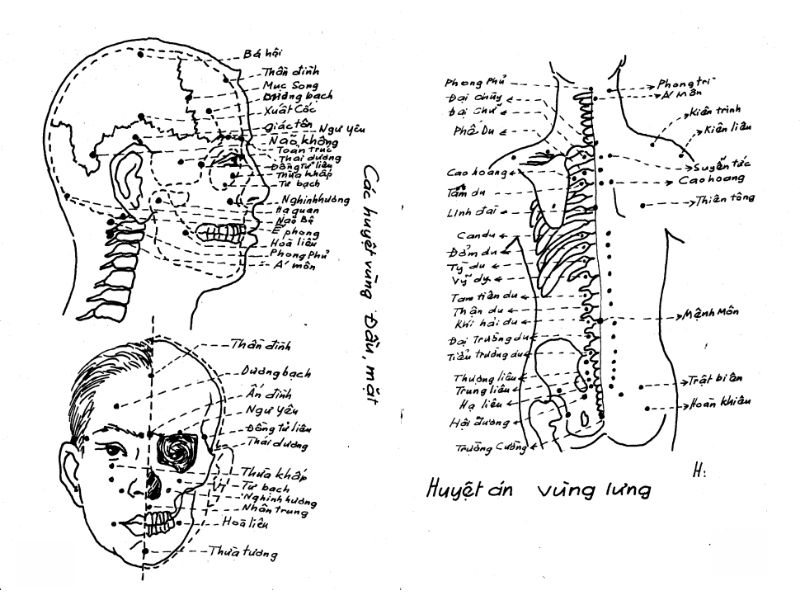 Bá hội
Thần đình
Mục Song
Dương bạch
Xuất Cốc
Giác tôn
Ngư yêu
Não không
Toản Trúc
Thái dương
Đồng tử liêu
Thừa khấp
Tứ bạch
Nghinh hương
Hạ quan
Não Bộ
Ế phong
Hoà liêu
Phong Phủ
Á môn
Các huyệt vùng Đầu, mặt
Thần đình
Dương bạch
Ấn đình
Ngư yêu
Đồng tử liêu
Thái dương
Thừa khấp
Tứ bạch
Nghinh hương
Nhân trung
Hoà liêu
Thừa tương
Phong Phủ
Đại chùy
Đại chữ
Phế Du
Cao hoang
Tâm du
Linh đài
Can du
Đởm du
Tỳ du
Vỹ dy
Tam tiên du
Thận du
Khí hải du
Đại Trường du
Tiểu trường du
Thượng liêu
Trung liêu
Hạ liêu
Hội dương
Trường Cường
Phong trì
Á môn
Kiên trinh
Kiên liêu
Cao hoang
Thiên tông
Mệnh Môn
Trật biên
Hoàn khiêu
H:
Huyệt án vùng lưng